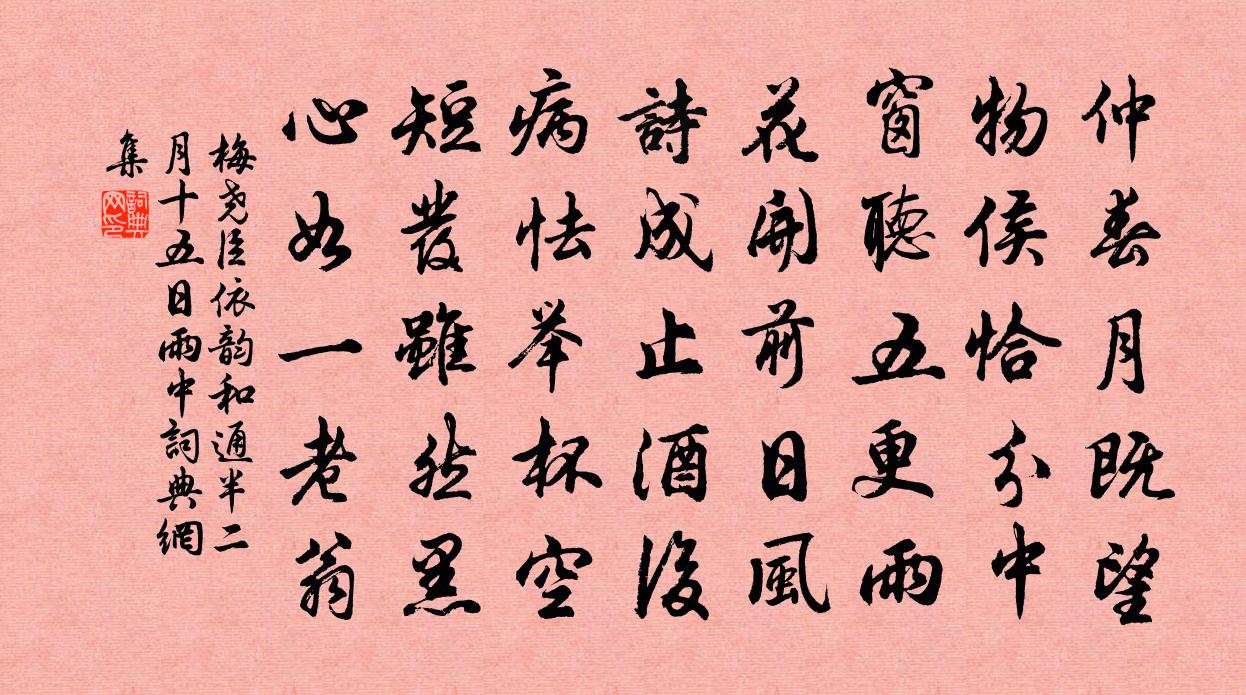 仲春月既望
物侯恰分中
窗聽五更雨
花開前日風
詩成止酒後
病怯举杯空
短發雖然黑
心如一老翁
梅尧臣依韵和通半二
月十五日雨中詞典網
集
詞典
网印